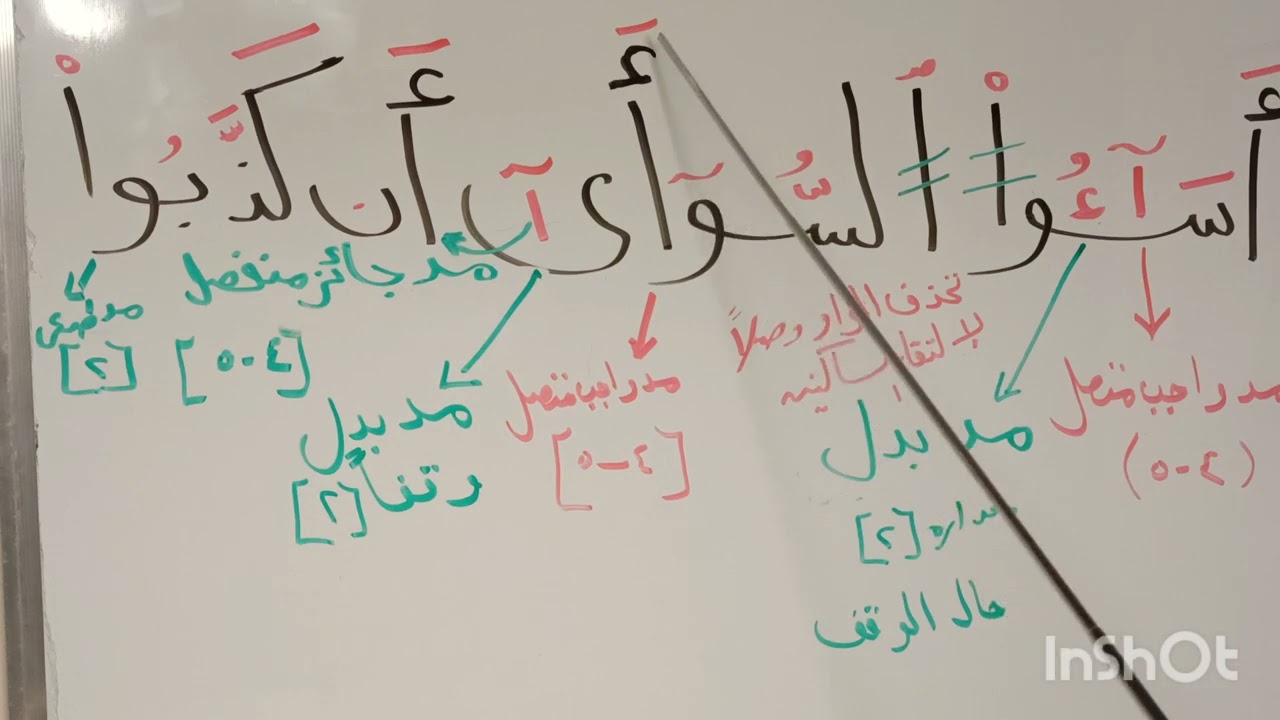 أَسَـٰٓـُٔوا۟ ٱلسُّوٓأَىٰٓ أَن كَذَّبُوا۟
مد واجب متصل
(٤-٥)
مد بدل
مقداره [٢]
حال الوقف
تحذف الواو وصلاً
لالتقاء ساكنين
مد واجب متصل
[٤-٥]
مد بدل
وقفاً [٢]
مد جائز منفصل
[٤-٥]
مد طبيعي
[٢]
InShOt